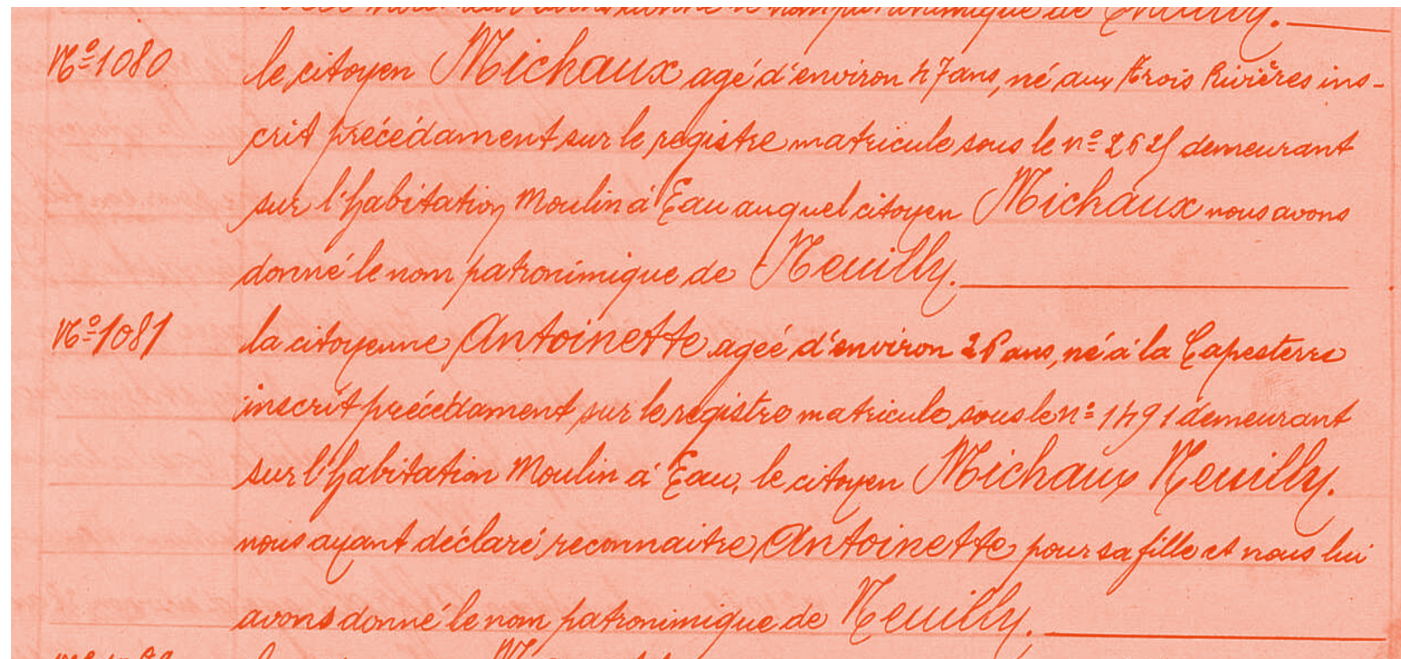 nom patronimique de
Nº 1080 le citoyen Michaux agé d'environ 47 ans, né aux trois Rivières ins-
crit précédament sur le registre matricule sous le nº demeurant
sur l'habitation Moulin à Eau auquel citoyen Michaux nous avons
donné le nom patronimique de Neuilly.
Nº 1081 la citoyenne Antoinette ageé d'environ 26 ans, né à la Capesterre
inscrit précédament sur le registre matricule sous le nº 1491 demeurant
sur l'habitation Moulin à Eau, le citoyen Michaux Neuilly.
nous ayant déclaré reconnaitre Antoinette pour sa fille et nous lui
avons donné le nom patronimique de Neuilly.